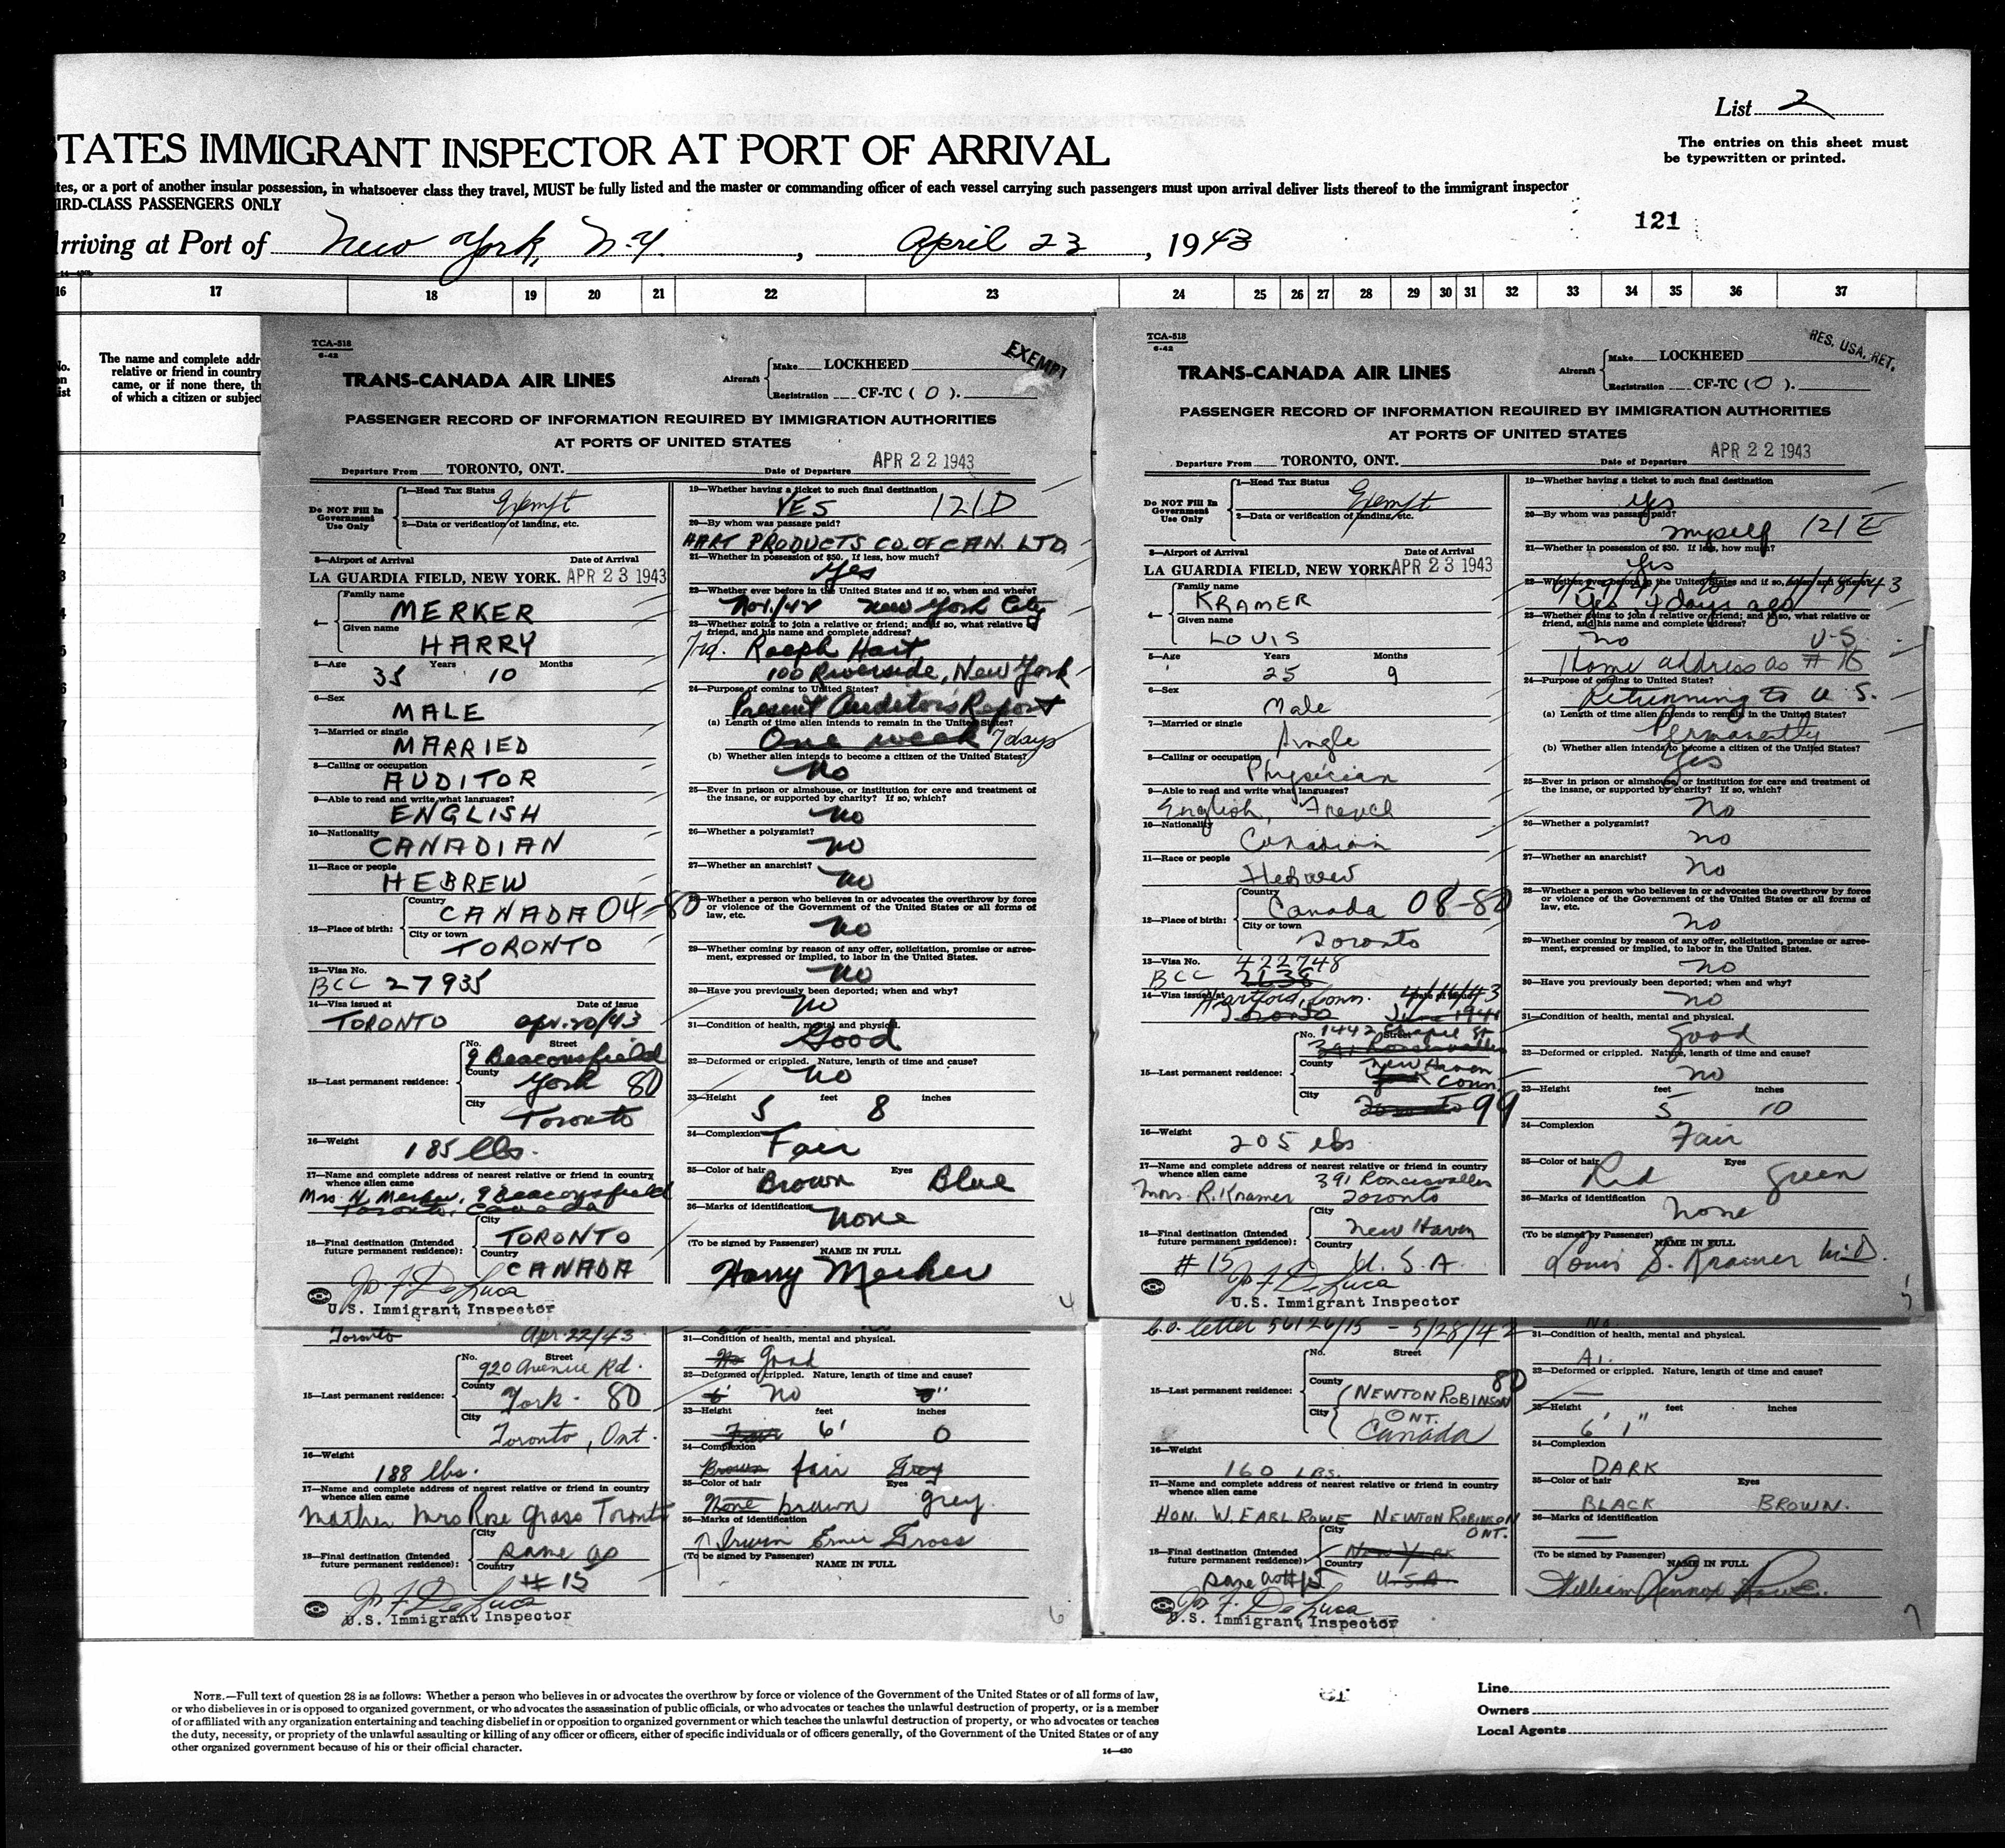 List 2
The entries on this sheet must
be typewritten or printed.
TATES IMMIGRANT INSPECTOR AT PORT OF ARRIVAL
tes, or a port of another insular possession, in whatsoever class they travel, MUST be fully listed and the master or commanding officer of each vessel carrying such passengers must upon arrival deliver lists thereof to the immigrant inspector
IRD-CLASS PASSENGERS ONLY
121
rriving at Port of New York, N.Y. , April 23 , 1943
16 17 18 19 20 21 22 23 24 25 26 27 28 29 30 31 32 33 34 35 36 37
No.
on
ist
The name and complete addr
relative or friend in country
came, or if none there, th
of which a citizen or subject
TCA-518
6-42
EXEMPT
TRANS-CANADA AIR LINES
Aircraft Make LOCKHEED
Registration CF-TC ( O ).
PASSENGER RECORD OF INFORMATION REQUIRED BY IMMIGRATION AUTHORITIES
AT PORTS OF UNITED STATES
Departure From TORONTO, ONT. Date of Departure APR 22 1943
Do NOT Fill In
Government
Use Only
1—Head Tax Status
Exempt
2—Data or verification of landing, etc.
3—Airport of Arrival Date of Arrival
LA GUARDIA FIELD, NEW YORK. APR 23 1943
4— Family name
MERKER
Given name
HARRY
5—Age Years Months
35 10
6—Sex
MALE
7—Married or single
MARRIED
8—Calling or occupation
AUDITOR
9—Able to read and write what languages?
ENGLISH
10—Nationality
CANADIAN
11—Race or people
HEBREW
12—Place of birth: Country
CANADA 04-80
City or town
TORONTO
13—Visa No.
BCC 27935
14—Visa issued at Date of issue
TORONTO apr. 20/43
15—Last permanent residence: No. Street
9 Beaconsfield
County
York 80
City
Toronto
16—Weight
185 lbs.
17—Name and complete address of nearest relative or friend in country
whence alien came
Mrs. H. Merker, 9 Beaconsfield
Toronto, Canada
18—Final destination (Intended
future permanent residence):
City
TORONTO
Country
CANADA
Jo. F. DeLuca
U.S. Immigrant Inspector
19—Whether having a ticket to such final destination
YES 121D
20—By whom was passage paid?
HART PRODUCTS CO. OF CAN. LTD
21—Whether in possession of $50. If less, how much?
Yes
22—Whether ever before in the United States and if so, when and where?
Nov./42 New York City
23—Whether going to join a relative or friend; and if so, what relative or
friend, and his name and complete address?
Frd. Ralph Hart
100 Riverside, New York
24—Purpose of coming to United States?
Present Auditor's Report
(a) Length of time alien intends to remain in the United States?
One week 7 days
(b) Whether alien intends to become a citizen of the United States?
No
25—Ever in prison or almshouse, or institution for care and treatment of
the insane, or supported by charity? If so, which?
No
26—Whether a polygamist?
No
27—Whether an anarchist?
No
28—Whether a person who believes in or advocates the overthrow by force
or violence of the Government of the United States or all forms of
law, etc.
No
29—Whether coming by reason of any offer, solicitation, promise or agree-
ment, expressed or implied, to labor in the United States.
No
30—Have you previously been deported; when and why?
No
31—Condition of health, mental and physical.
Good
32—Deformed or crippled. Nature, length of time and cause?
No
33—Height feet inches
5 8
34—Complexion
Fair
35—Color of hair Eyes
Brown Blue
36—Marks of identification
None
(To be signed by Passenger) NAME IN FULL
Harry Merker
4
TCA-518
6-42
RES. USA. RET.
TRANS-CANADA AIR LINES
Aircraft Make LOCKHEED
Registration CF-TC ( O ).
PASSENGER RECORD OF INFORMATION REQUIRED BY IMMIGRATION AUTHORITIES
AT PORTS OF UNITED STATES
Departure From TORONTO, ONT. Date of Departure APR 22 1943
Do NOT Fill In
Government
Use Only
1—Head Tax Status
Exempt
2—Data or verification of landing, etc.
3—Airport of Arrival Date of Arrival
LA GUARDIA FIELD, NEW YORK APR 23 1943
4— Family name
KRAMER
Given name
LOUIS
5—Age Years Months
25 9
6—Sex
Male
7—Married or single
Single
8—Calling or occupation
Physician
9—Able to read and write what languages?
English, French
10—Nationality
Canadian
11—Race or people
Hebrew
12—Place of birth: Country
Canada 08-80
City or town
Toronto
13—Visa No.
422748
BCC 2636
14—Visa issued at Date of issue
Hartford, Conn. 4/14/43
Toronto June 1941
15—Last permanent residence: No. Street
1442 Chapel St
391 Roncesvalles
County
New Haven
York Conn.
City
Toronto 99
16—Weight
205 lbs
17—Name and complete address of nearest relative or friend in country
whence alien came
391 Roncesvalles
Mrs. R. Kramer Toronto
18—Final destination (Intended
future permanent residence):
City
New Haven
Country
#15 U.S.A.
Jo. F. DeLuca
U.S. Immigrant Inspector
19—Whether having a ticket to such final destination
Yes
20—By whom was passage paid?
myself 121 E
21—Whether in possession of $50. If less, how much?
Yes
22—Whether ever before in the United States and if so, when and where?
Yes 4 days ago
23—Whether going to join a relative or friend; and if so, what relative or
friend, and his name and complete address?
No U.S.
Home address as # 15
24—Purpose of coming to United States?
Returning to U.S.
(a) Length of time alien intends to remain in the United States?
Permanently
(b) Whether alien intends to become a citizen of the United States?
Yes
25—Ever in prison or almshouse, or institution for care and treatment of
the insane, or supported by charity? If so, which?
No
26—Whether a polygamist?
No
27—Whether an anarchist?
No
28—Whether a person who believes in or advocates the overthrow by force
or violence of the Government of the United States or all forms of
law, etc.
No
29—Whether coming by reason of any offer, solicitation, promise or agree-
ment, expressed or implied, to labor in the United States.
No
30—Have you previously been deported; when and why?
No
31—Condition of health, mental and physical.
Good
32—Deformed or crippled. Nature, length of time and cause?
No
33—Height feet inches
5 10
34—Complexion
Fair
35—Color of hair Eyes
Red Green
36—Marks of identification
None
(To be signed by Passenger) NAME IN FULL
Louis S. Kramer M.D.
5
Toronto Apr. 22/43
15—Last permanent residence: No. Street
920 Avenue Rd.
County
York - 80
City
Toronto, Ont.
16—Weight
188 lbs.
17—Name and complete address of nearest relative or friend in country
whence alien came
Mother Mrs Rose Gross Toronto
18—Final destination (Intended
future permanent residence):
City
same as
Country
# 15
Jo. F. DeLuca
U.S. Immigrant Inspector
31—Condition of health, mental and physical.
No good
32—Deformed or crippled. Nature, length of time and cause?
6' No 0"
33—Height feet inches
Fair 6' 0
34—Complexion
Brown fair Grey
35—Color of hair Eyes
None brown grey.
36—Marks of identification
Irwin Ernie Gross
(To be signed by Passenger) NAME IN FULL
6
C.O. letter 56126/15 - 5/28/42
15—Last permanent residence: No. Street
County 80
NEWTON ROBINSON
City ONT.
Canada
16—Weight
160 LBS.
17—Name and complete address of nearest relative or friend in country
whence alien came
HON. W. EARL ROWE NEWTON ROBINSON
ONT.
18—Final destination (Intended
future permanent residence):
City
New York
Country
same as #15 U.S.A.
Jo. F. DeLuca
U.S. Immigrant Inspector
No.
31—Condition of health, mental and physical.
A1.
32—Deformed or crippled. Nature, length of time and cause?
—
33—Height feet inches
6' 1"
34—Complexion
DARK
35—Color of hair Eyes
BLACK BROWN.
36—Marks of identification
—
(To be signed by Passenger) NAME IN FULL
William Lennox Rowe.
7
NOTE.—Full text of question 28 is as follows: Whether a person who believes in or advocates the overthrow by force or violence of the Government of the United States or of all forms of law,
or who disbelieves in or is opposed to organized government, or who advocates the assassination of public officials, or who advocates or teaches the unlawful destruction of property, or is a member
of or affiliated with any organization entertaining and teaching disbelief in or opposition to organized government or which teaches the unlawful destruction of property, or who advocates or teaches
the duty, necessity, or propriety of the unlawful assaulting or killing of any officer or officers, either of specific individuals or of officers generally, of the Government of the United States or of any
other organized government because of his or their official character.
14—430
Line
Owners
Local Agents